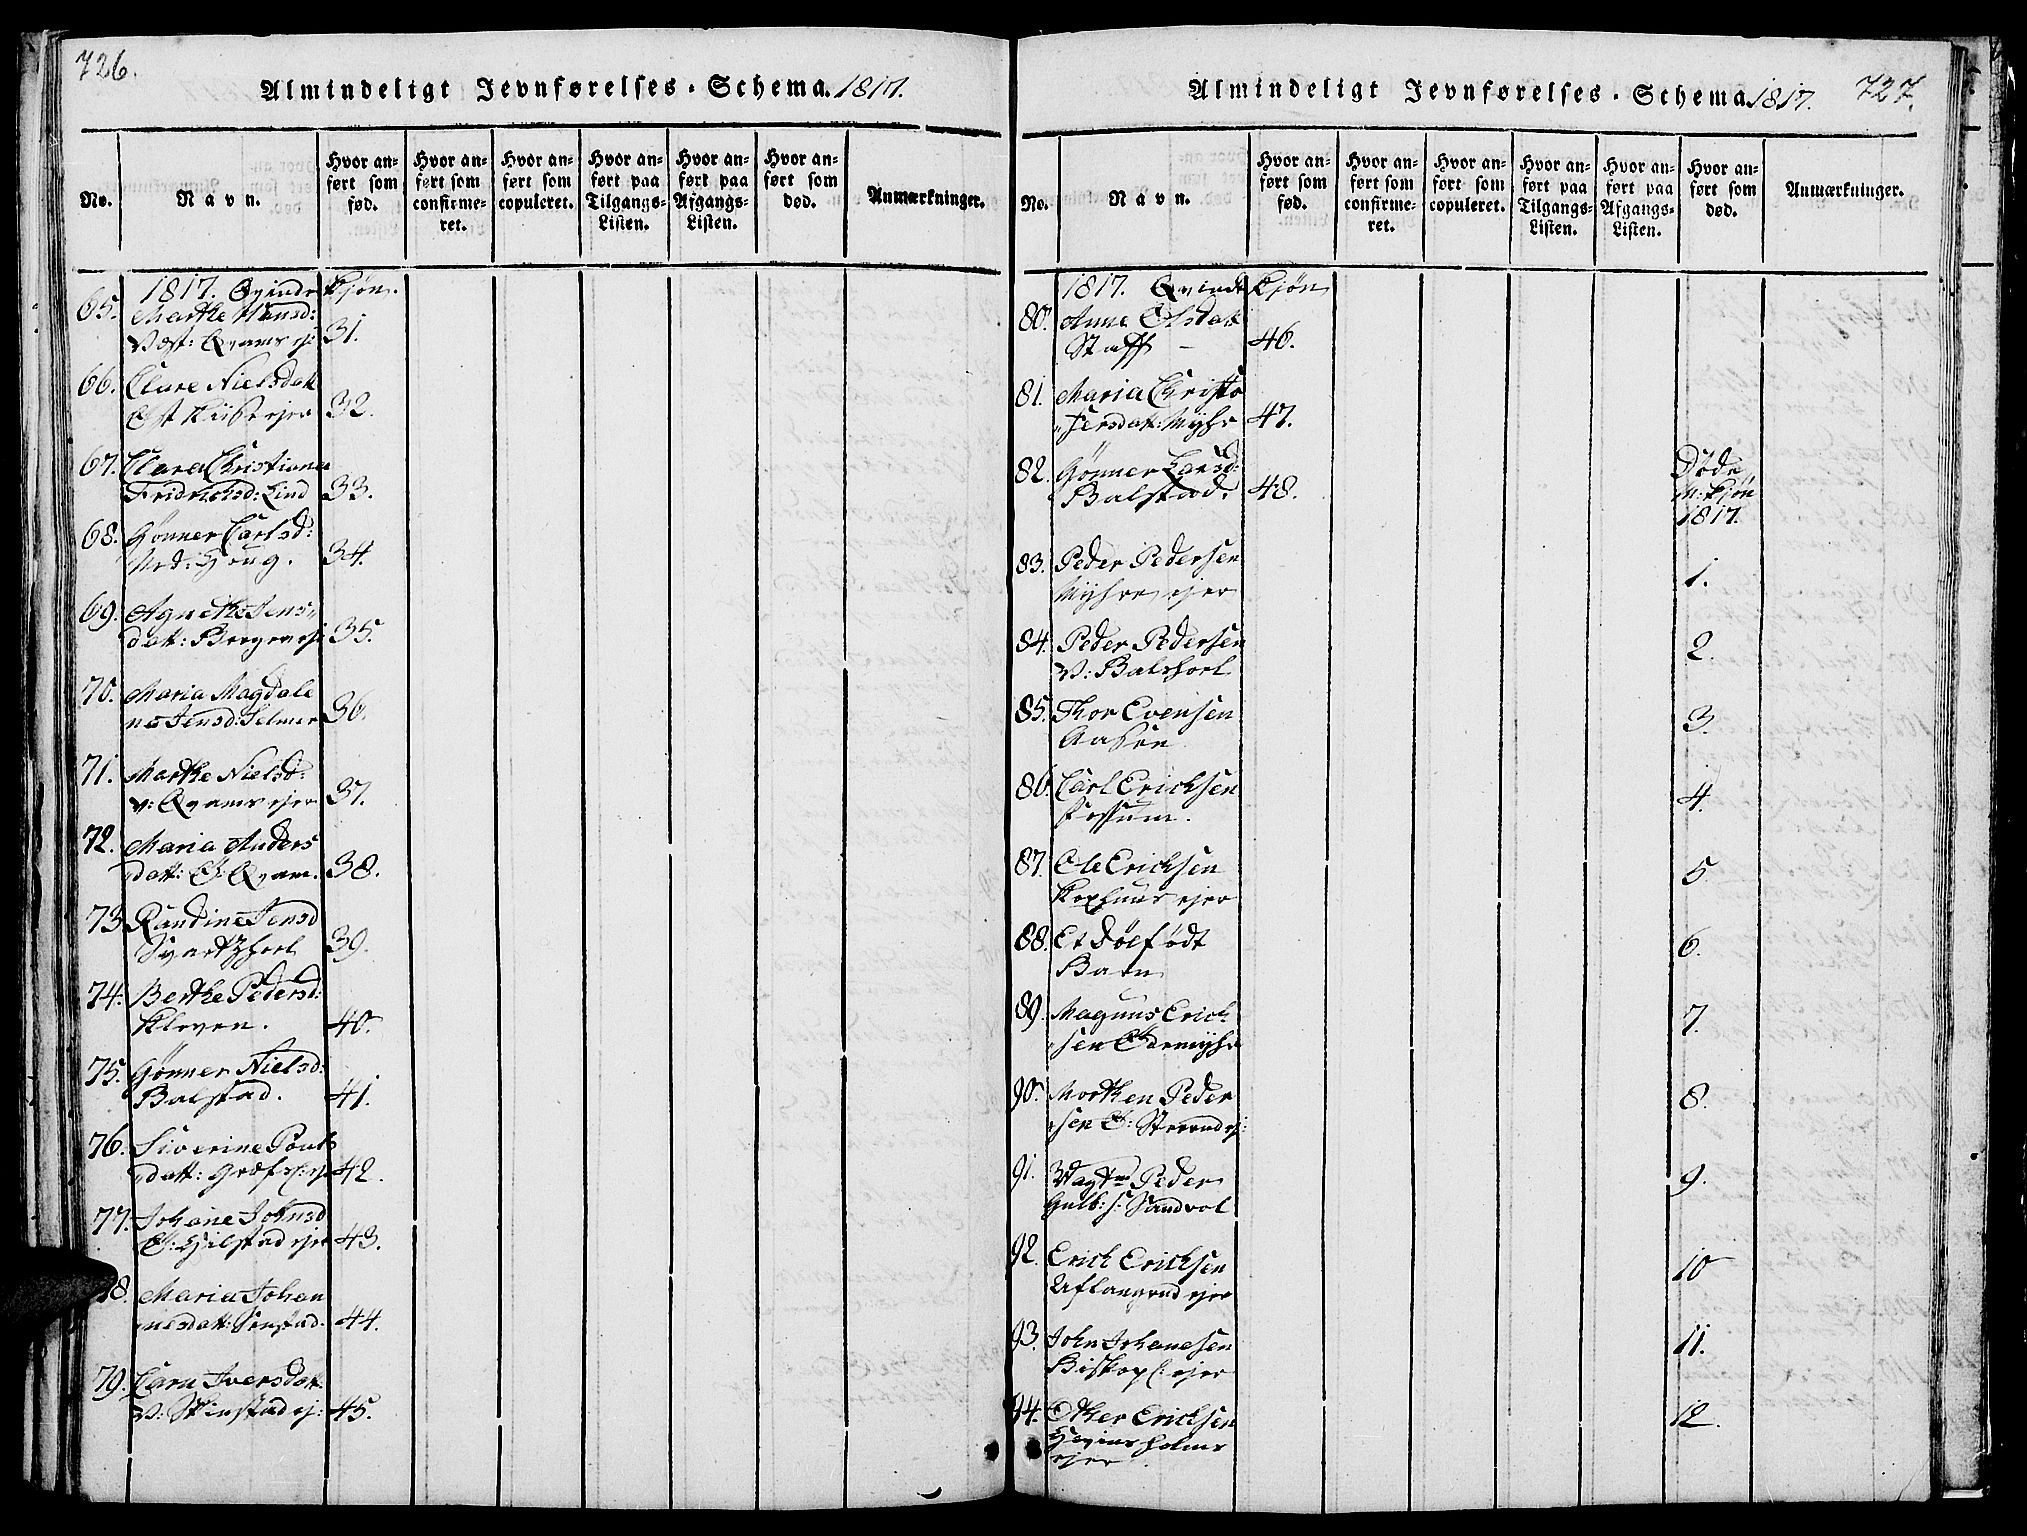 726.
Almindeligt Jevnførelses-Schema. 1817.
No.
Navn.
Hvor an-
ført som
fød.
Hvor an-
ført som
confirme-
ret.
Hvor an-
ført som
copuleret.
Hvor an-
ført paa
Tilgangs-
Listen.
Hvor an-
ført paa
Afgangs-
Listen.
Hvor an-
ført som
død.
Anmærkninger.
1817. Qvinde Kjøn.
65. Marthe Hansd:
Vest: Qvams ej: 31.
66. Clare Nielsdatt
Øst ejer 32.
67. Clara Christiana
Fridrichsd: Lind 33.
68. Gønner Carlsd:
Ned: Houg. 34.
69. Agnethe Jens
datt: ej 35.
70. Maria Magdale
na Jensd: Selmer 36.
71. Marthe Nielsd:
v: Qvams ejer 37.
72. Maria Anders
datt: Ø: Qvam. 38.
73 Randine Jensd
39.
74. Berthe Pedersd:
Kleven. 40.
75. Gønner Nielsd:
Balstad. 41.
76. Siverine Pouls
datt: 42.
77. Johane Johnsd
Ø: ejer 43.
78. Maria Johan
nesdatt: 44.
79. Carn Iversdatt
V: Skinstad ej: 45.
Almindeligt Jevnførelses-Schema 1817.
727.
No.
Navn.
Hvor an-
ført som
fød.
Hvor an-
ført som
confirme-
ret.
Hvor an-
ført som
copuleret.
Hvor an-
ført paa
Tilgangs-
Listen.
Hvor an-
ført paa
Afgangs-
Listen.
Hvor an-
ført som
død.
Anmærkninger.
1817. Qvinde Kjøn
80. Anne Olsdatt
Staff - 46.
81. Maria Christo
fersdatt: Myhr 47.
82. Gønner Larsd:
Balstad. 48.
Døde
M: Kjøn
1817.
83. Peder Pedersen
Myhre ejer 1.
84. Peder Pedersen
V: Balshoel 2.
85. Thor Evensen
Aasen 3.
86. Carl Ericksen
Fossum. 4.
87. Ole Ericksen
ejer 5
88. Et Dødfødt
Barn 6.
89. Magnus Erick
sen 7.
90. Morthen Peder
sen Ø: ej: 8.
91. Peder
Gulb: s: Sandvol 9.
92. Erick Ericksen
ejer 10
93. John Johanesen
Biskop l: ejer 11.
94. Other Ericksen
ejer. 12.